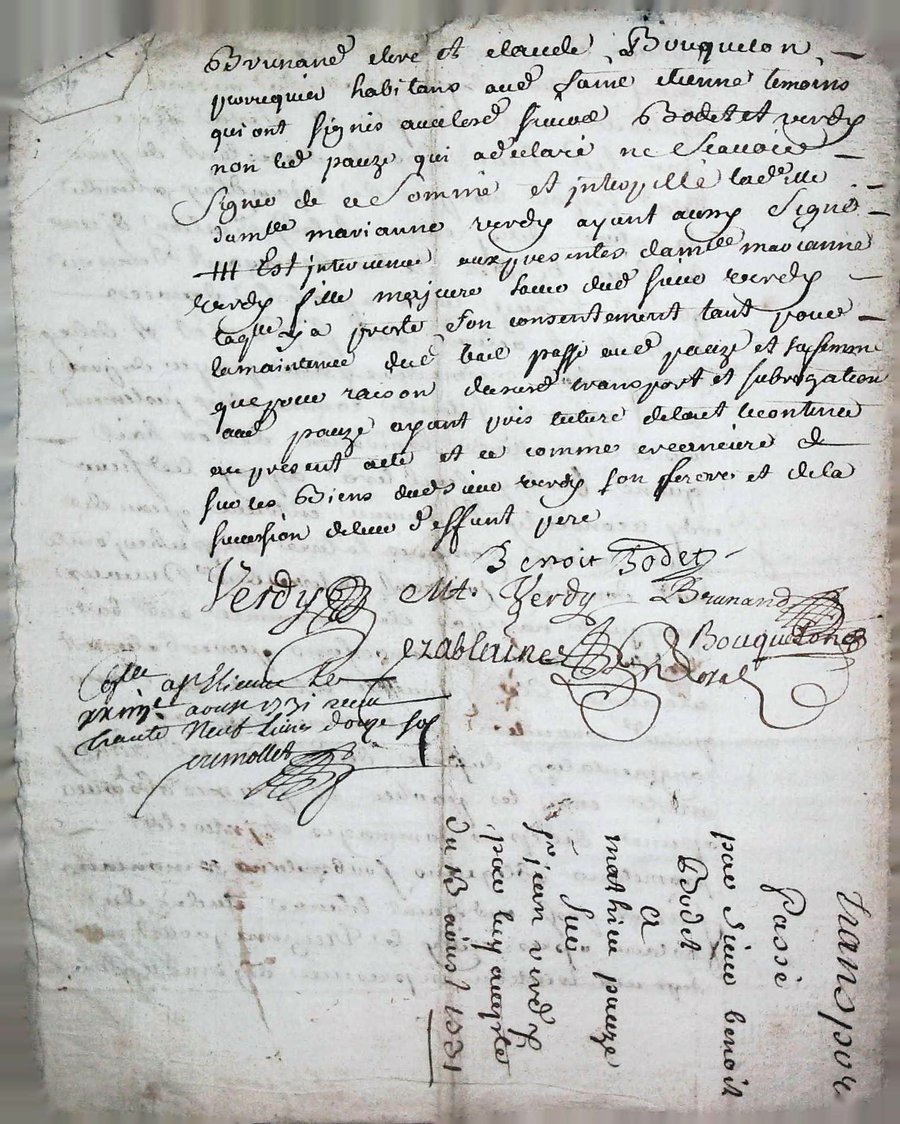 Brunand clerc et claude Bouqueton
perruquier habitans aud Saint etienne temoins
qui ont signés avec led sieurs Bodet et verdy
non led pauze qui a declaré ne scavoir
signer de ce sommé et interpellé lad
damlle marianne verdy ayant aussy signé
Est intervenue aux presentes damlle marianne
verdy fille majeure sœur dud sieur verdy
laquelle a presté son consentement tant pour
la maintenue dud bail passé aud pauze et sa femme
que pour raison du transport et subrogation
aud pauze ayant pris lecture de tout le contenu
au present acte et ce comme creanciere
sur les Biens dud sieur verdy son frere et de la
succession de leur deffunt pere
Benoit Bodet
Verdy M. Verdy Brunand
Bouqueton
a St Etienne le
aoust 1731 receu
trante neuf livres douze sols
cumollet
transpor
Passé
par sieur benoit
Bodet
a
mathieu pauze
sur
sr jean verdy
par luy accepté
du 13 aoust 1731